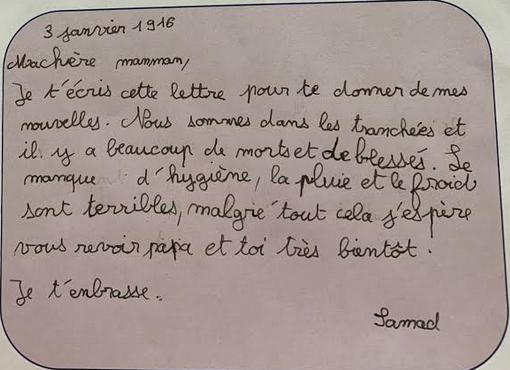 3 janvier 1916
Machère mamman,
Je t'écris cette lettre pour te donner de mes
nouvelles. Nous sommes dans les tranchées et
il y a beaucoup de morts et de blessés. Le
manque d'hygiène, la pluie et le froid
sont terribles, malgré tout cela j'espère
vous revoir papa et toi très bientôt.
Je t'enbrasse.
Samad